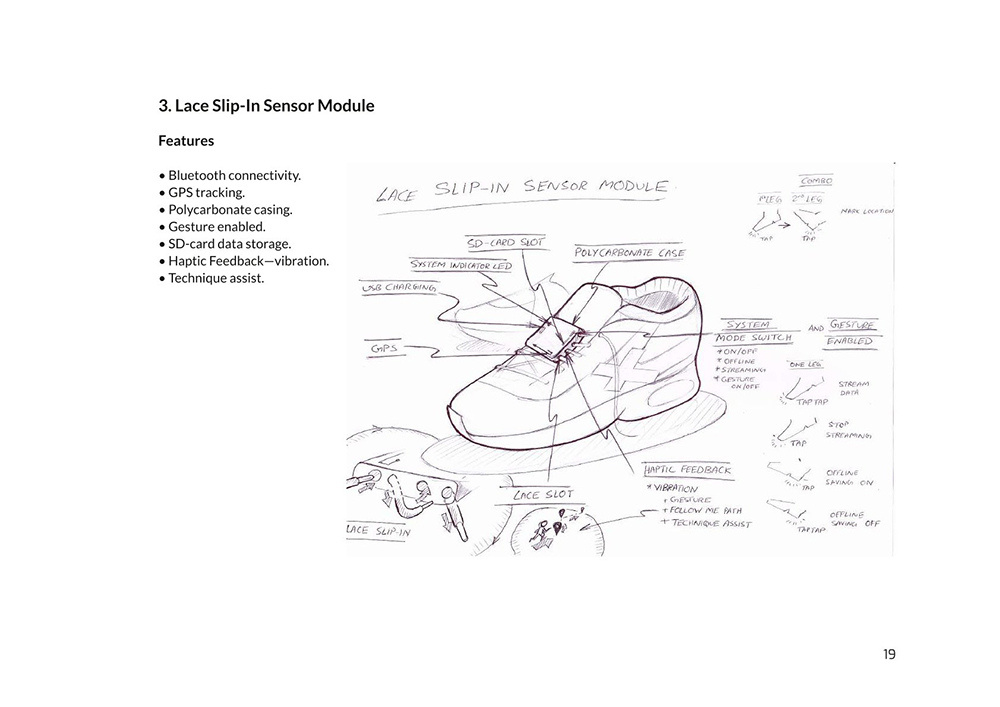 3. Lace Slip-In Sensor Module
Features
• Bluetooth connectivity.
• GPS tracking.
• Polycarbonate casing.
• Gesture enabled.
• SD-card data storage.
• Haptic Feedback—vibration.
• Technique assist.
LACE SLIP-IN SENSOR MODULE
COMBO
1ST LEG 2ND LEG
MARK LOCATION
TAP TAP
SD-CARD SLOT
POLYCARBONATE CASE
SYSTEM INDICATOR LED
USB CHARGING
GPS
SYSTEM AND GESTURE
MODE SWITCH ENABLED
* ON/OFF
* OFFLINE
* STREAMING
* GESTURE
ON/OFF
ONE LEG
STREAM
DATA
TAP TAP
STOP
STREAMING
TAP
OFFLINE
SAVING ON
TAP
OFFLINE
SAVING OFF
TAP TAP
HAPTIC FEEDBACK
* VIBRATION
+ GESTURE
+ FOLLOW ME PATH
+ TECHNIQUE ASSIST
LACE SLOT
LACE SLIP-IN
19